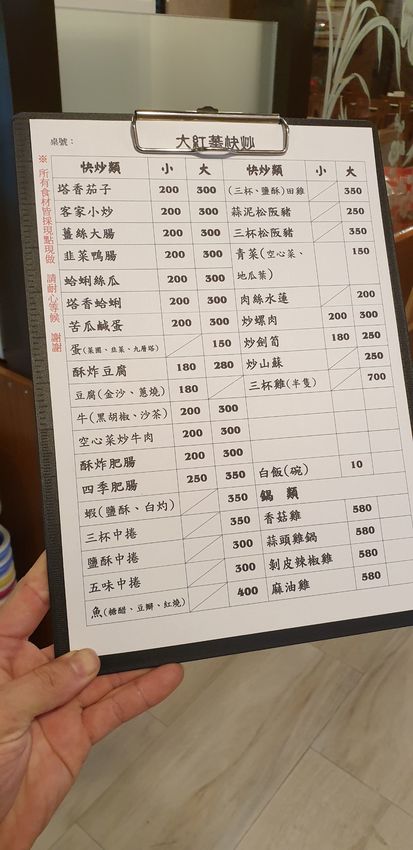 大紅蕃快炒
桌號：
※ 所有食材皆採現點現做 請耐心等候 謝謝
快炒類 小 大
塔香茄子 200 300
客家小炒 200 300
薑絲大腸 200 300
韭菜鴨腸 200 300
蛤蜊絲瓜 200 300
塔香蛤蜊 200 300
苦瓜鹹蛋 200 300
蛋(菜圃、韭菜、九層塔) 150
酥炸豆腐 180 280
豆腐(金沙、蔥燒) 180
牛(黑胡椒、沙茶) 200 300
空心菜炒牛肉 200 300
酥炸肥腸 200 300
四季肥腸 250 350
蝦(鹽酥、白灼) 350
三杯中捲 350
鹽酥中捲 300
五味中捲 300
魚(糖醋、豆瓣、紅燒) 400
快炒類 小 大
(三杯、鹽酥)田雞 350
蒜泥松阪豬 250
三杯松阪豬 350
青菜(空心菜、 150
地瓜葉)
肉絲水蓮 200
炒螺肉 200 300
炒劍筍 180 250
炒山蘇 250
三杯雞(半隻) 700
白飯(碗) 10
鍋 類
香菇雞 580
蒜頭雞鍋 580
剝皮辣椒雞 580
麻油雞 580